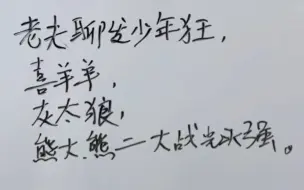 老夫聊发少年狂,
喜羊羊,
灰太狼,
熊大熊二大战光头强。